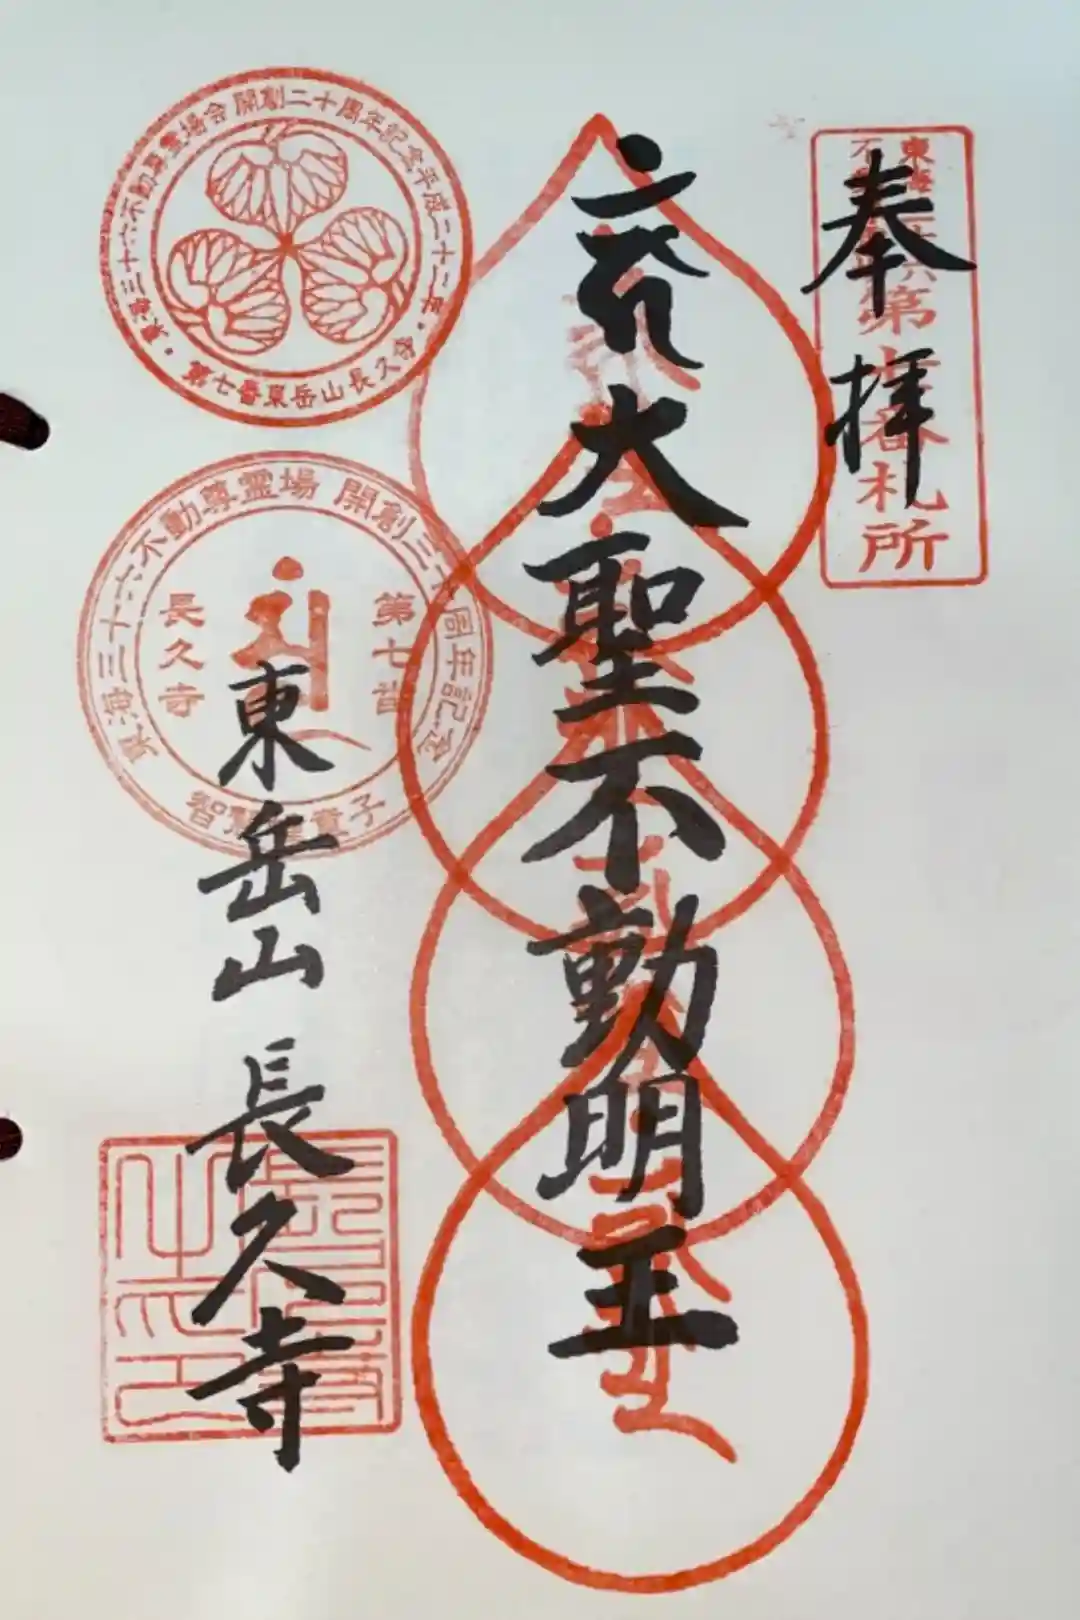 奉拝
東海三十六
不動尊霊場
第七番札所
大聖不動明王
東海三十六不動尊霊場会 開創二十周年記念 平成二十二年
第七番 東岳山長久寺
東海三十六不動尊霊場 開創三十周年記念
第七番
長久寺
童子
東岳山 長久寺